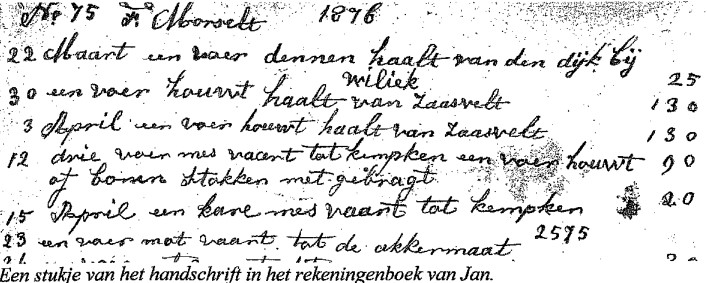 No 75 F. Morselt 1876
22 Maart een voer dennen haalt van den dijk bij
wiliek 25
30 een voer houwt haalt van Zaasvelt 130
3 April een voer houwt haalt van Zaasvelt 130
12 drie voer mes vaant tot kempken een voer houwt 90
of bonen stokken met gebragt
15 April een kare mes vaant tot kempken 20
23 een voer mot vaant tot de akkermaat 2575
Een stukje van het handschrift in het rekeningenboek van Jan.